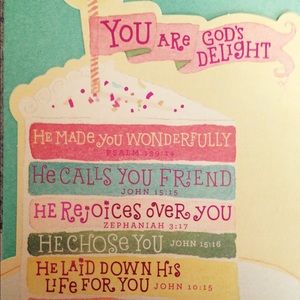 You are God's Delight
He made you wonderfully
Psalm 139:14
He calls you friend
John 15:15
He rejoices over you
Zephaniah 3:17
He chose you John 15:16
He laid down His
life for you John 10:15